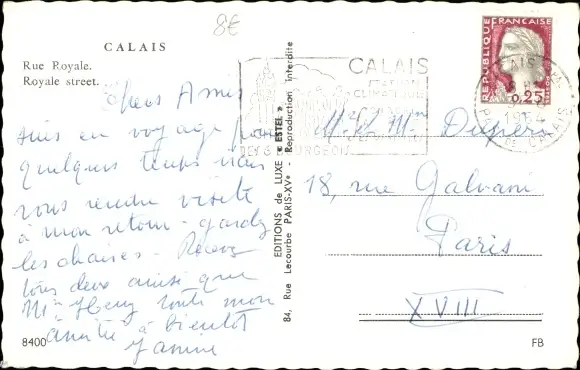 8€
CALAIS
Rue Royale.
Royale street.
Chers Amis
suis en voyage pour
quelques temps irai
vous rendre visite
à mon retour - gardez
les chaises - Recevez
tous deux ainsi que
toute mon
amitié à bientôt
Janine
8400
EDITIONS de LUXE « ESTEL »
84, Rue Lecourbe PARIS-XVe - Reproduction interdite
CALAIS
DE CALAIS
1964
REPUBLIQUE FRANÇAISE
0,25
18, rue Galvani
Paris
XVIII
FB